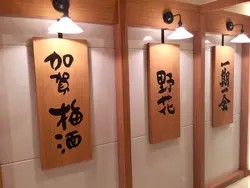 加賀梅酒
野花
一期一会